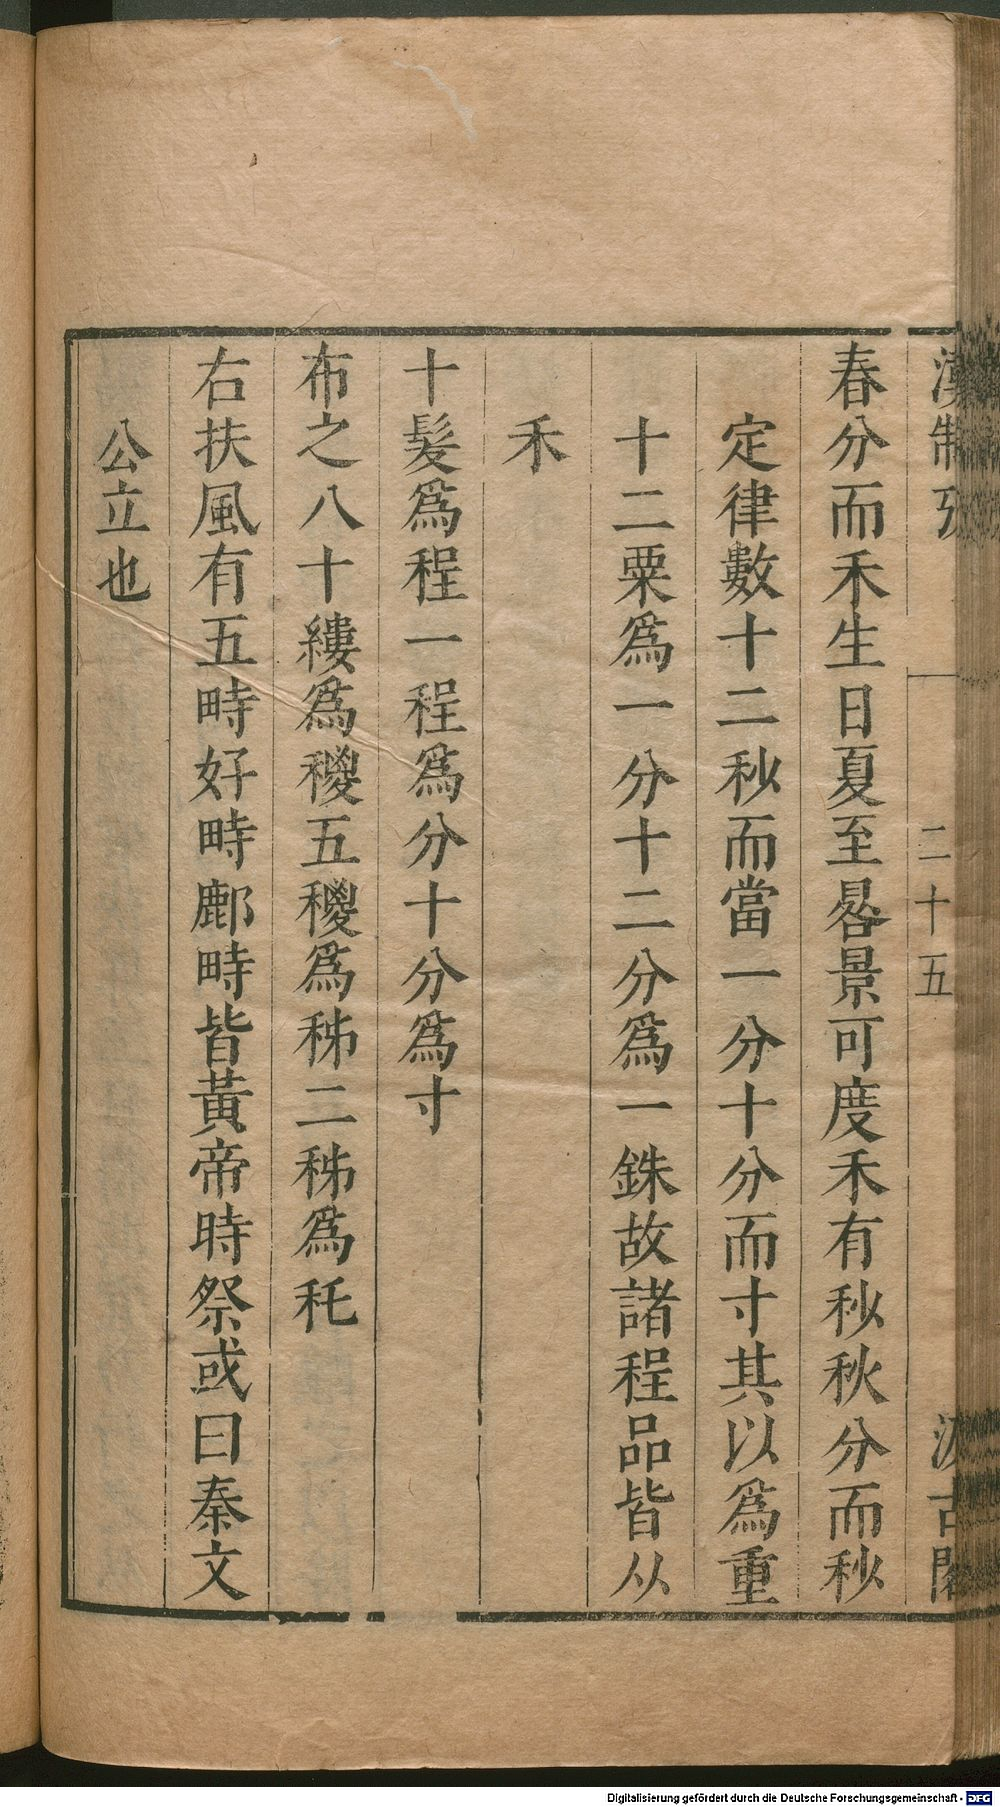 漢制攷
二十五
汲古閣
春分而禾生日夏至晷景可度禾有秒秋分而秒
定律數十二秒而當一分十分而寸其以為重
十二粟為一分十二分為一銖故諸程品皆从
禾
十髮為程一程為分十分為寸
布之八十縷為稯五稯為秭二秭為秅
右扶風有五畤好畤鄜畤皆黃帝時祭或曰秦文
公立也
Digitalisierung gefördert durch die Deutsche Forschungsgemeinschaft - DFG